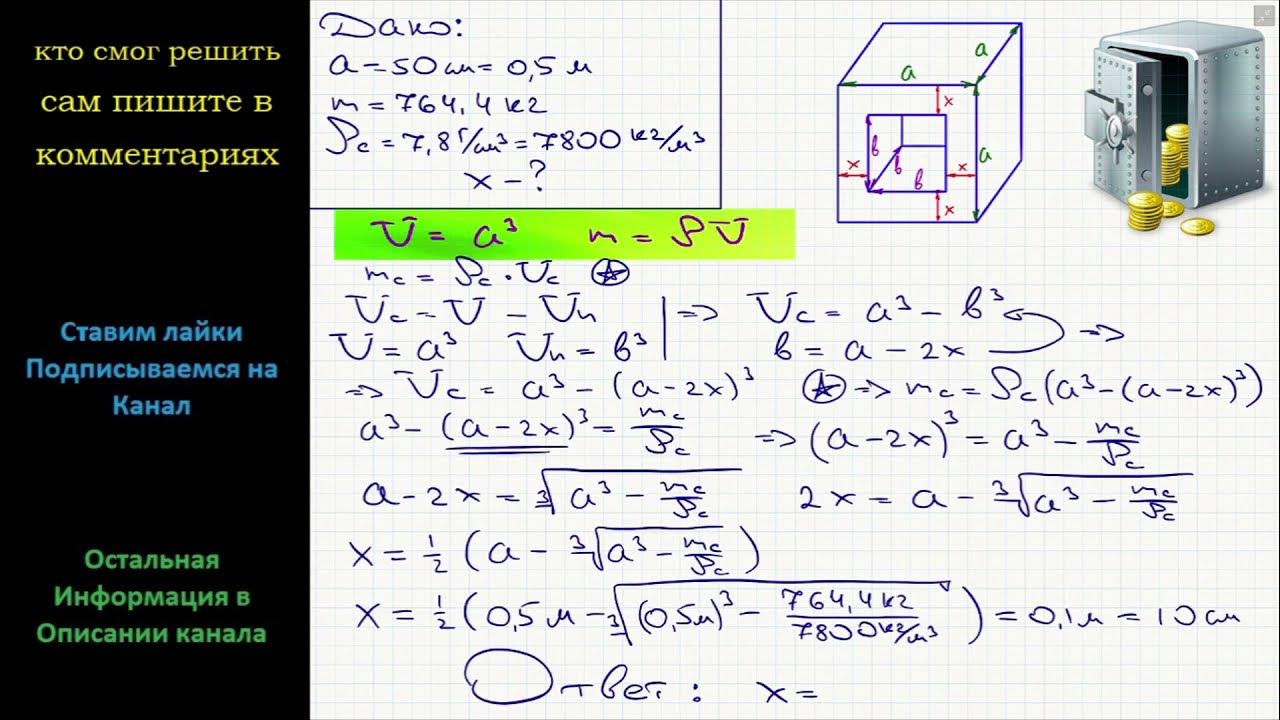 кто смог решить
сам пишите в
комментариях
Ставим лайки
Подписываемся на
Канал
Остальная
Информация в
Описании канала
Дано:
a = 50 см = 0,5 м
m = 764,4 кг
ρc = 7,8 г/см³ = 7800 кг/м³
x - ?
a
a
a
x
x
x
x
в
в
в
V = a³ m = ρV
mc = ρc · Vc ☆
Vc = V - Vп | => Vc = a³ - в³
V = a³ Vп = в³ | в = a - 2x =>
=> Vc = a³ - (a - 2x)³ ☆ => mc = ρc(a³ - (a - 2x)³)
a³ - (a - 2x)³ = mc/ρc => (a - 2x)³ = a³ - mc/ρc
a - 2x = ³√(a³ - mc/ρc) 2x = a - ³√(a³ - mc/ρc)
x = 1/2 (a - ³√(a³ - mc/ρc))
x = 1/2 (0,5 м - ³√((0,5м)³ - 764,4 кг/7800 кг/м³)) = 0,1 м = 10 см
Ответ: x =